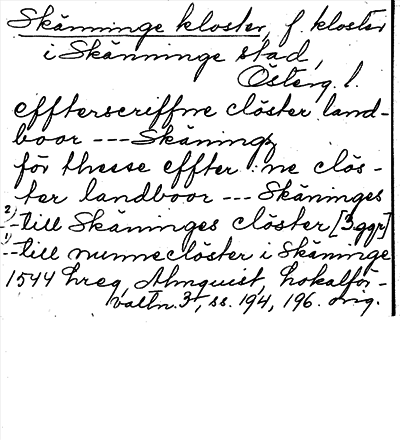 Skänninge kloster, f. kloster
i Skänninge stad,
Österg. l.
effterscriffne clöster land-
boor --- Skänings
för thesse effter:ne clös-
ter landboor --- Skäninges
2) -- till Skäninges clöster [3 ggr]
1) -- till nunneclöster i Skäninge
1544 hreg, Almquist, Lokalför-
valtn. 3, ss. 194, 196. orig.